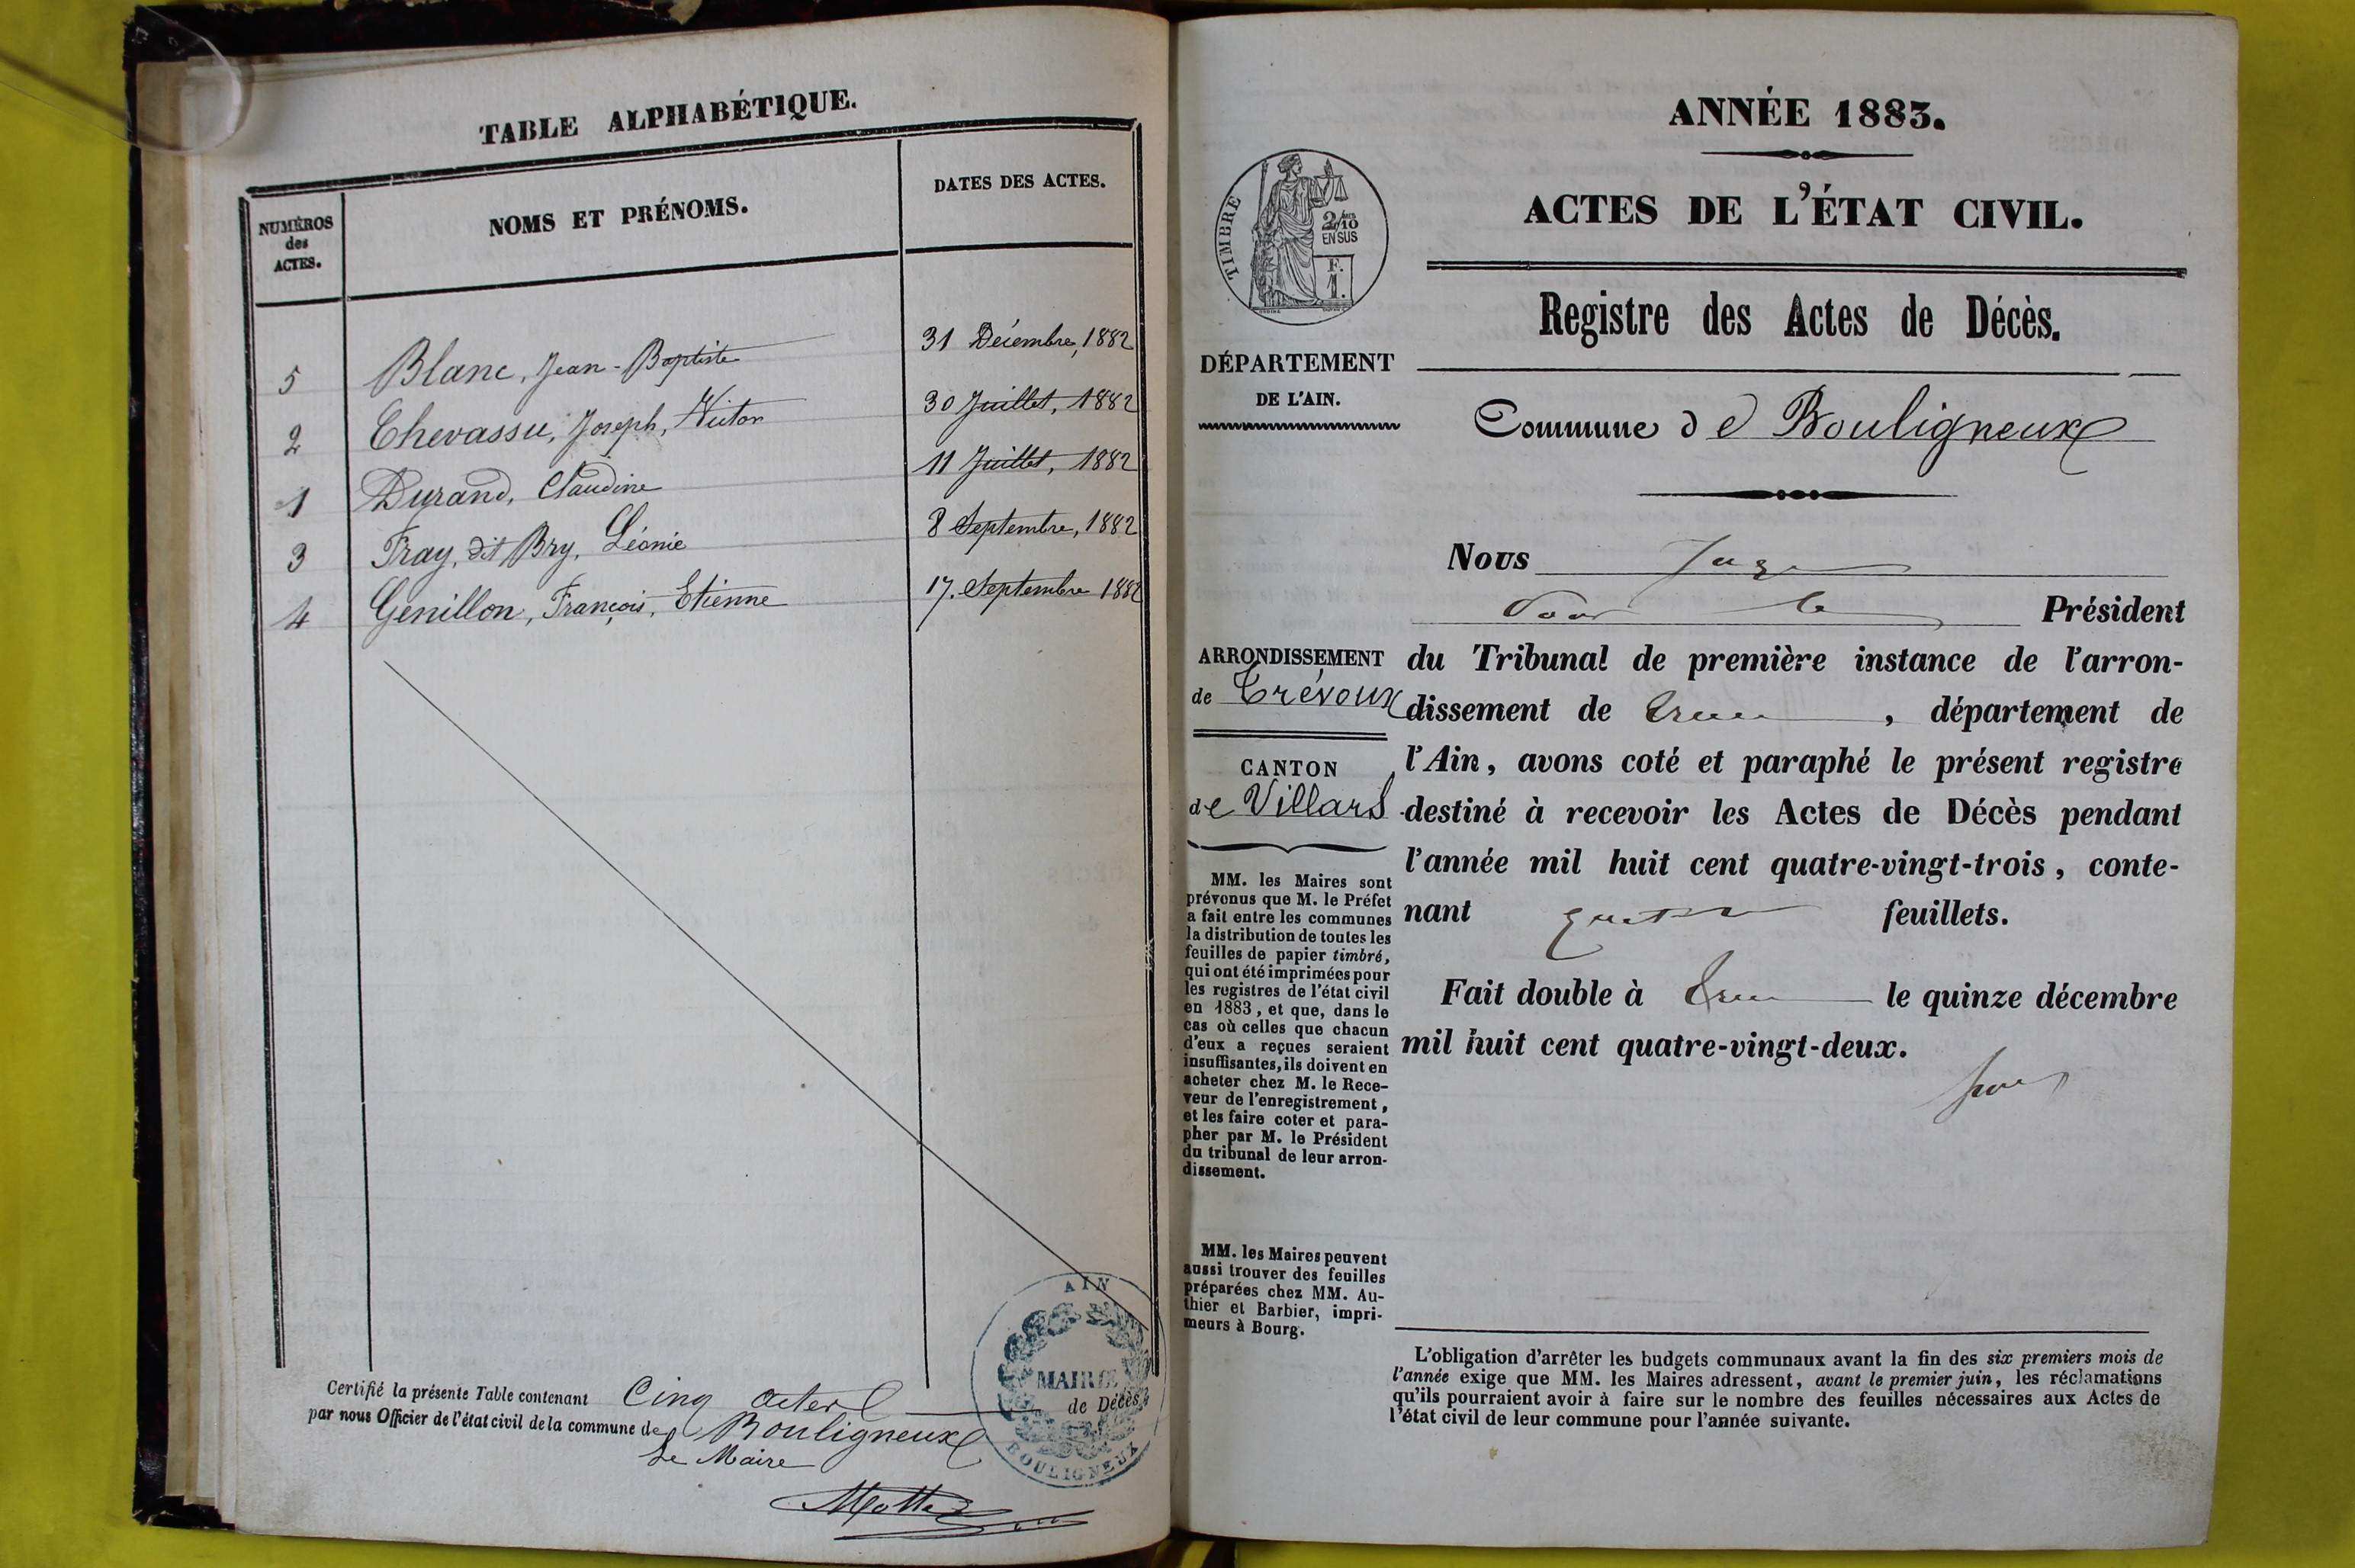 TABLE ALPHABÉTIQUE.
NUMÉROS des ACTES.
NOMS ET PRÉNOMS.
DATES DES ACTES.
5 Blanc, Jean-Baptiste 31 Décembre, 1882
2 Chevassu, Joseph, Victor 30 Juillet, 1882
1 Durand, Claudine 11 Juillet, 1882
3 Fray, dit Bry, Léonie 8 Septembre, 1882
4 Genillon, François, Etienne 17. Septembre 1882
Certifié la présente Table contenant Cinq actes de Décès,
par nous Officier de l'état civil de la commune de Bouligneux
Le Maire
AIN
MAIRIE
BOULIGNEUX
ANNÉE 1883.
ACTES DE L'ÉTAT CIVIL.
TIMBRE
2/10
EN SUS
F.
1.
Registre des Actes de Décès.
DÉPARTEMENT
DE L'AIN.
Commune de Bouligneux
ARRONDISSEMENT
de Trévoux
CANTON
de Villars
MM. les Maires sont
prévenus que M. le Préfet
a fait entre les communes
la distribution de toutes les
feuilles de papier timbré,
qui ont été imprimées pour
les registres de l'état civil
en 1883, et que, dans le
cas où celles que chacun
d'eux a reçues seraient
insuffisantes, ils doivent en
acheter chez M. le Rece-
veur de l'enregistrement,
et les faire coter et para-
pher par M. le Président
du tribunal de leur arron-
dissement.
MM. les Maires peuvent
aussi trouver des feuilles
préparées chez MM. Au-
thier et Barbier, impri-
meurs à Bourg.
Nous Juge
le Président
du Tribunal de première instance de l'arron-
dissement de , département de
l'Ain, avons coté et paraphé le présent registre
destiné à recevoir les Actes de Décès pendant
l'année mil huit cent quatre-vingt-trois, conte-
nant quatre feuillets.
Fait double à le quinze décembre
mil huit cent quatre-vingt-deux.
L'obligation d'arrêter les budgets communaux avant la fin des six premiers mois de
l'année exige que MM. les Maires adressent, avant le premier juin, les réclamations
qu'ils pourraient avoir à faire sur le nombre des feuilles nécessaires aux Actes de
l'état civil de leur commune pour l'année suivante.